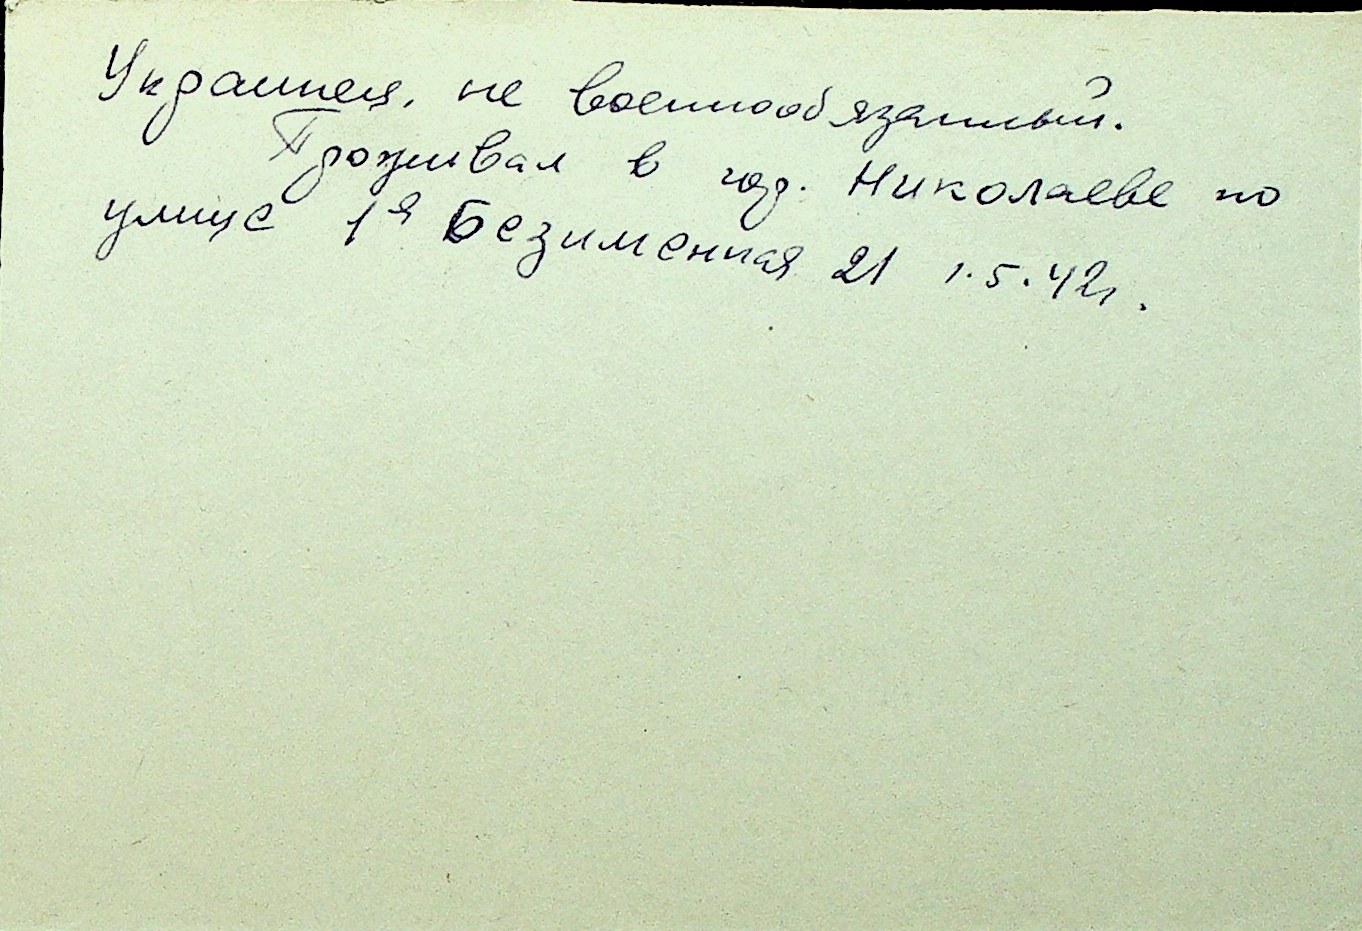 Украинец, не военнообязанный.
Проживал в гор. Николаеве по
улице 1я Безименная 21 1.5.42г.